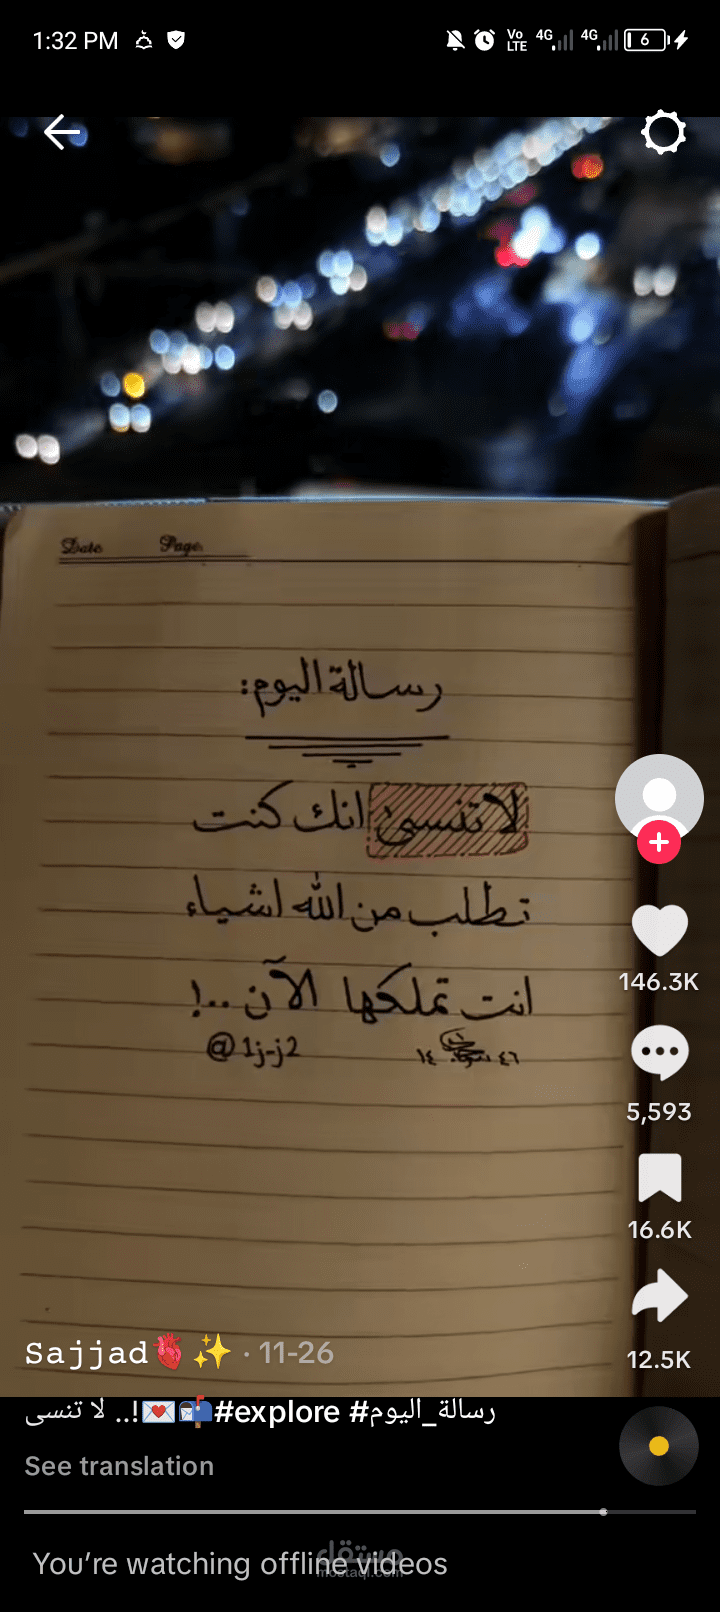 1:32 PM
Vo LTE 4G 4G 6
Date Page
رسالة اليوم:
لا تنسىٰ انك كنت
تطلب من الله اشياء
انت تملكها الآن ..!
@1j-j2
١٤ ٤٦
146.3K
5,593
16.6K
12.5K
Sajjad🫀✨ · 11-26
لا تنسى ..!💌📬#explore #رسالة_اليوم
See translation
You’re watching offline videos
مستقل
mostaql.com